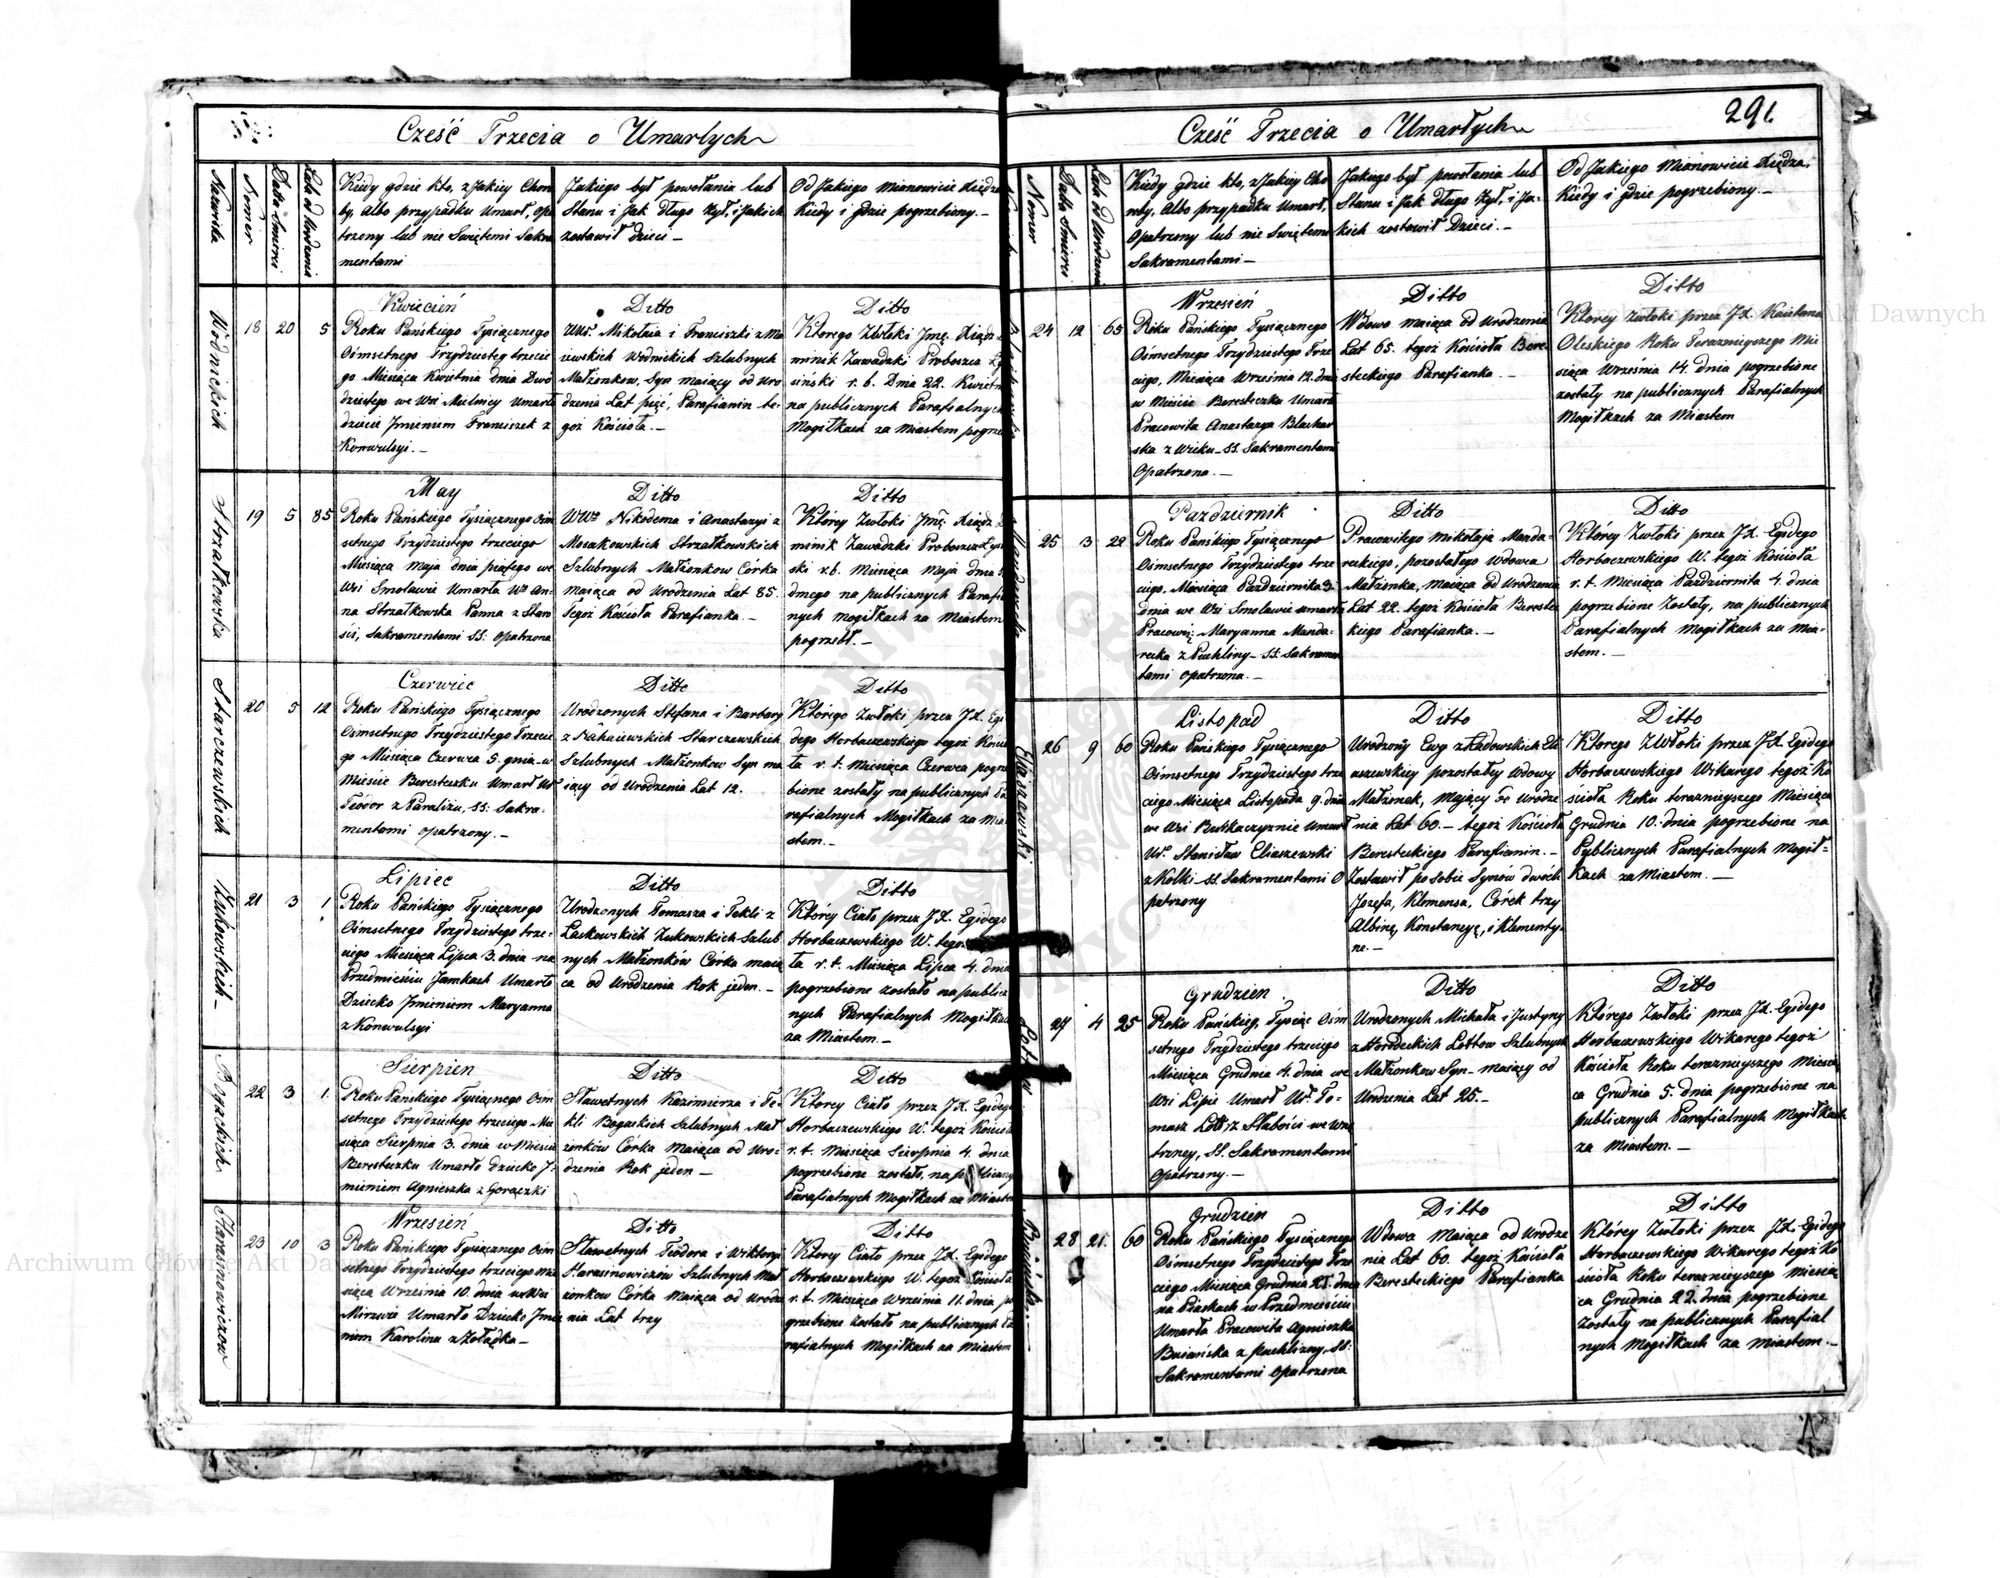 Cześć Trzecia o Umarłych
Nazwiska
Nomer
Datta Smierci
Lata od Urodzenia
Kiedy gdzie kto, z Jakiey Choro
by, Albo przypadku Umarł, Opa
trzony lub nie Swiętemi Sakra
mentami
Jakiego był powołania lub
Stanu i Jak Długo żył, i Jakich
zostawił dzieci —
Od Jakiego Mianowicie Xiędza
Kiedy i gdzie pogrzebiony. —
Wodnickich
18
20
5
Kwiecień
Roku Pańskiego Tysiącznego
Ośmsetnego Trzydziesteg trzecie
go Miesiąca Kwietnia dnia Dwó
dziestego we Wsi Mielnicy Umarło
dziecie Jmieniem Franciszek z
Konwulsyi. —
Ditto
UUr. Mikołaia i Franciszki z Ma
iewskich Wodnickich Szlubnych
Małżonkow, Syn maiący od Uro
dzenia Lat pięć, Parafianin te-
goż Kościoła. —
Ditto
Ktorego Zwłoki Jmę. Xiądz
minik Zawadzki Proboszcz
siński r. b. Dnia 22. Kwietn
na publicznych Parafialnych
Mogiłkach za Miastem pogrze
Strzałkowska
19
5
85
May
Roku Pańskiego Tysiącznego Ośm
setnego Trzydziestego trzeciego
Miesiąca Maja dnia piątego we
Wsi Smolawie Umarła Wa An-
na Strzałkowska Panna z Staro
ści, Sakramentami SS: Opatrzona
Ditto
WWch Nikodema i Anastazyi z
Mosakowskich Strzałkowskich
Szlubnych Małżonkow Córka
maiąca od Urodzenia Lat 85.
tegoż Kościoła Parafianka. —
Ditto
Którey Zwłoki Jmę. Xiądz
minik Zawadzki Proboszcz
ski r. b. Miesiąca Maja dnia
dmego na publicznych Parafial
nych mogiłkach za Miastem
pogrzebł. —
Starczewskich
20
5
12
Czerwiec
Roku Pańskiego Tysiącznego
Ośmsetnego Trzydziestego Trzecie
go Miesiąca Czerwca 5. dnia w
Miescie Beresteczku Umarł Ur
Teodor z Paraliżu, SS: Sakra-
mentami opatrzony. —
Ditto
Urodzonych Stefana i Barbary
z Nahaiewskich Starczewskich
Szlubnych Małżonkow Syn ma
iący od Urodzenia Lat 12.
Ditto
Którego Zwłoki przez J.X. Egi
dego Horbaczewskiego tegoż Kościo
ła r. t. Miesiąca Czerwca pogrze
bione zostały na publicznych Pa
rafialnych Mogiłkach za Mia
stem. —
Zukowskich —
21
3
1
Lipiec
Roku Pańskiego Tysiącznego
Ośmsetnego Trzydziestego trze-
ciego Miesiąca Lipca 3. dnia na
Przedmieściu Zamkach Umarło
Dziecko Jmieniem Maryanna
z Konwulsyi
Ditto
Urodzonych Tomasza i Tekli z
Laskowskich Zukowskich Szlub
nych Małżonków Córka maią
ca od Urodzenia Rok jeden. —
Ditto
Którey Ciało przez J.X. Egidego
Horbaczewskiego W. tego
ła r. t. Miesiąca Lipca 4. dnia
pogrzebione zostało na publicz
nych Parafialnych Mogiłkach
za Miastem. —
Bogackich
22
3
1
Sierpien
Roku Pańskiego Tysiącznego Ośm
setnego Trzydziestego trzeciego Mie
siąca Sierpnia 3. dnia w Mieście
Beresteczku Umarło dziecko J-
mieniem Agnieszka z Gorączki
Ditto
Sławetnych Kazimierza i Te-
kli Bogackich Szlubnych Mał
żonków Córka Maiąca od Uro-
dzenia Rok jeden —
Ditto
Ktorey Ciało przez J.X. Egidego
Horbaczewskiego W. tegoż Kościoła
r. t. Miesiąca Sierpnia 4. dnia
pogrzebione zostało, na publiczny
Parafialnych Mogiłkach za Miastem
Harasinowiczow
23
10
3
Wrzesień
Roku Pańskiego Tysiącznego Ośm
setnego Trzydziestego trzeciego Mie
siąca Wrzesnia 10. dnia w Wsi
Mirzwie Umarło Dziecko Jmie
niem Karolina z Zołądka —
Ditto
Sławetnych Teodora i Wiktoryi
Harasinowiczów Szlubnych Mał
żonkow Córka Maiąca od Urodze
nia Lat trzy
Ditto
Ktorey Ciało przez J.X. Egidego
Horbaczewskiego W. tegoż Kościoła
r. t. Miesiąca Wrzesnia 11. dnia po
grzebione zostało na publicznych Pa
rafialnych Mogiłkach za Miastem
291.
Cześć Trzecia o Umarłych
Nomer
Datta Smierci
Lata od Urodzenia
Kiedy gdzie kto, z Jakiey Cho
roby, Albo przypadku Umarł,
Opatrzony lub nie Swiętemi
Sakramentami —
Jakiego był powołania lub
Stanu i Jak Długo żył, i Ja-
kich zostawił Dzieci. —
Od Jakiego Mianowicie Xiędza,
Kiedy i gdzie pogrzebiony. —
24
12
65
Wrzesień
Roku Pańskiego Tysiącznego
Ośmsetnego Trzydziestego Trze
ciego, Miesiąca Września 12. dnia
w Mieście Beresteczku Umarła
Pracowita Anastazya Blachar
ska z Wieku — SS. Sakramentami
Opatrzona. —
Ditto
Wdowa maiąca od Urodzenia
Lat 65. tegoż Kościoła Bere-
steckiego Parafianka. —
Ditto
Ktorey Zwłoki przez J.X. Kaietana
Oleskiego Roku Teraznieyszego Mie
siąca Września 14. dnia pogrzebione
zostały na publicznych Parafialnych
Mogiłkach za Miastem
25
3
22
Pazdziernik
Roku Pańskiego Tysiącznego
Ośmsetnego Trzydziestego trze
ciego, Miesiąca Pazdziernika 3.
dnia we Wsi Smolawie umarła
Pracowi: Maryanna Manda-
recka z Puchliny — SS. Sakramen
tami opatrzona. —
Ditto
Pracowitego Mikołaja Manda-
reckiego, pozostałego Wdowca
Małżonka, maiąca od Urodzenia
Lat 22. tegoż Kościoła Bereste
kiego Parafianka. —
Ditto
Którey Zwłoki przez J.X. Egidego
Horbaczewskiego W. tegoż Kościoła
r. t. Miesiąca Pazdziernika 4. dnia
pogrzebione Zostały, na publicznych
Parafialnych mogiłkach za Mia-
stem. —
Eliaszewski
26
9
60
Listopad
Roku Pańskiego Tysiącznego
Ośmsetnego Trzydziestego trze
ciego Miesiąca Listopada 9. dnia
we Wsi Umarł
Ur. Stanisław Eliaszewski
z Kolki — SS. Sakramentami O
patrzony
Ditto
Urodzony Ewy z Ładowskich Eli
aszewskiey pozostałey Wdowy
Małżonek, Mający od Urodze
nia Lat 60. — tegoż Kościoła
Beresteckiego Parafianin. —
Zostawił po sobie Synow dwóch
Jozefa, Klemensa, Córek trzy
Albinę, Konstancyę, i Klementy-
nę. —
Ditto
Ktorego Zwłoki przez J.X. Egidego
Horbaczewskiego Wikarego tegoż Ko
ścioła Roku teraznieyszego Miesiąca
Grudnia 10. dnia pogrzebione na
Publicznych Parafialnych Mogił-
kach za Miastem. —
Lotow
27
4
25
Grudzien
Roku Pańskieg, Tysiąc Ośm
setnego Trzydziestego trzeciego
Miesiąca Grudnia 4. dnia we
Wsi Lipie Umarł Ur. To-
masz Lott z Słabości we Wnę
trzney, SS. Sakramentami
Opatrzony. —
Ditto
Urodzonych Michała i Justyny
z Horodeckich Lottow Szlubnych
Małżonkow Syn — maiący od
Urodzenia Lat 25. —
Ditto
Którego Zwłoki przez J.X. Egidego
Horbaczewskiego Wikarego tegoż
Kościoła Roku teraznieyszego Miesią
ca Grudnia 5. dnia pogrzebione na
publicznych Parafialnych Mogiłkach
za Miastem. —
28
21.
60
Grudzien
Roku Pańskiego Tysiącznego
Ośmsetnego Trzydziestego Trze
ciego Miesiąca Grudnia 21. dnia
na Piaskach w Przedmieściu
Umarła Pracowita Agnieszka
Busiańska z puchlizny, SS:
Sakramentami Opatrzona
Ditto
Wdowa Maiąca od Urodze
nia Lat 60. tegoż Kościoła
Beresteckiego Parafianka
Ditto
Którey Zwłoki przez J.X. Egidego
Horbaczewskiego Wikarego tegoż Ko
ścioła Roku teraznieyszego Miesią
ca Grudnia 22. dnia pogrzebione
Zostały na publicznych Parafial
nych Mogiłkach za Miastem. —
Archiwum Główne Akt Dawnych
Akt Dawnych